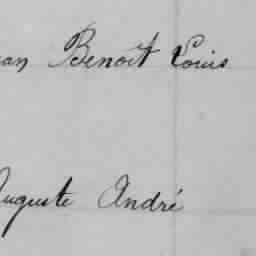 an Benoit Louis
Auguste André